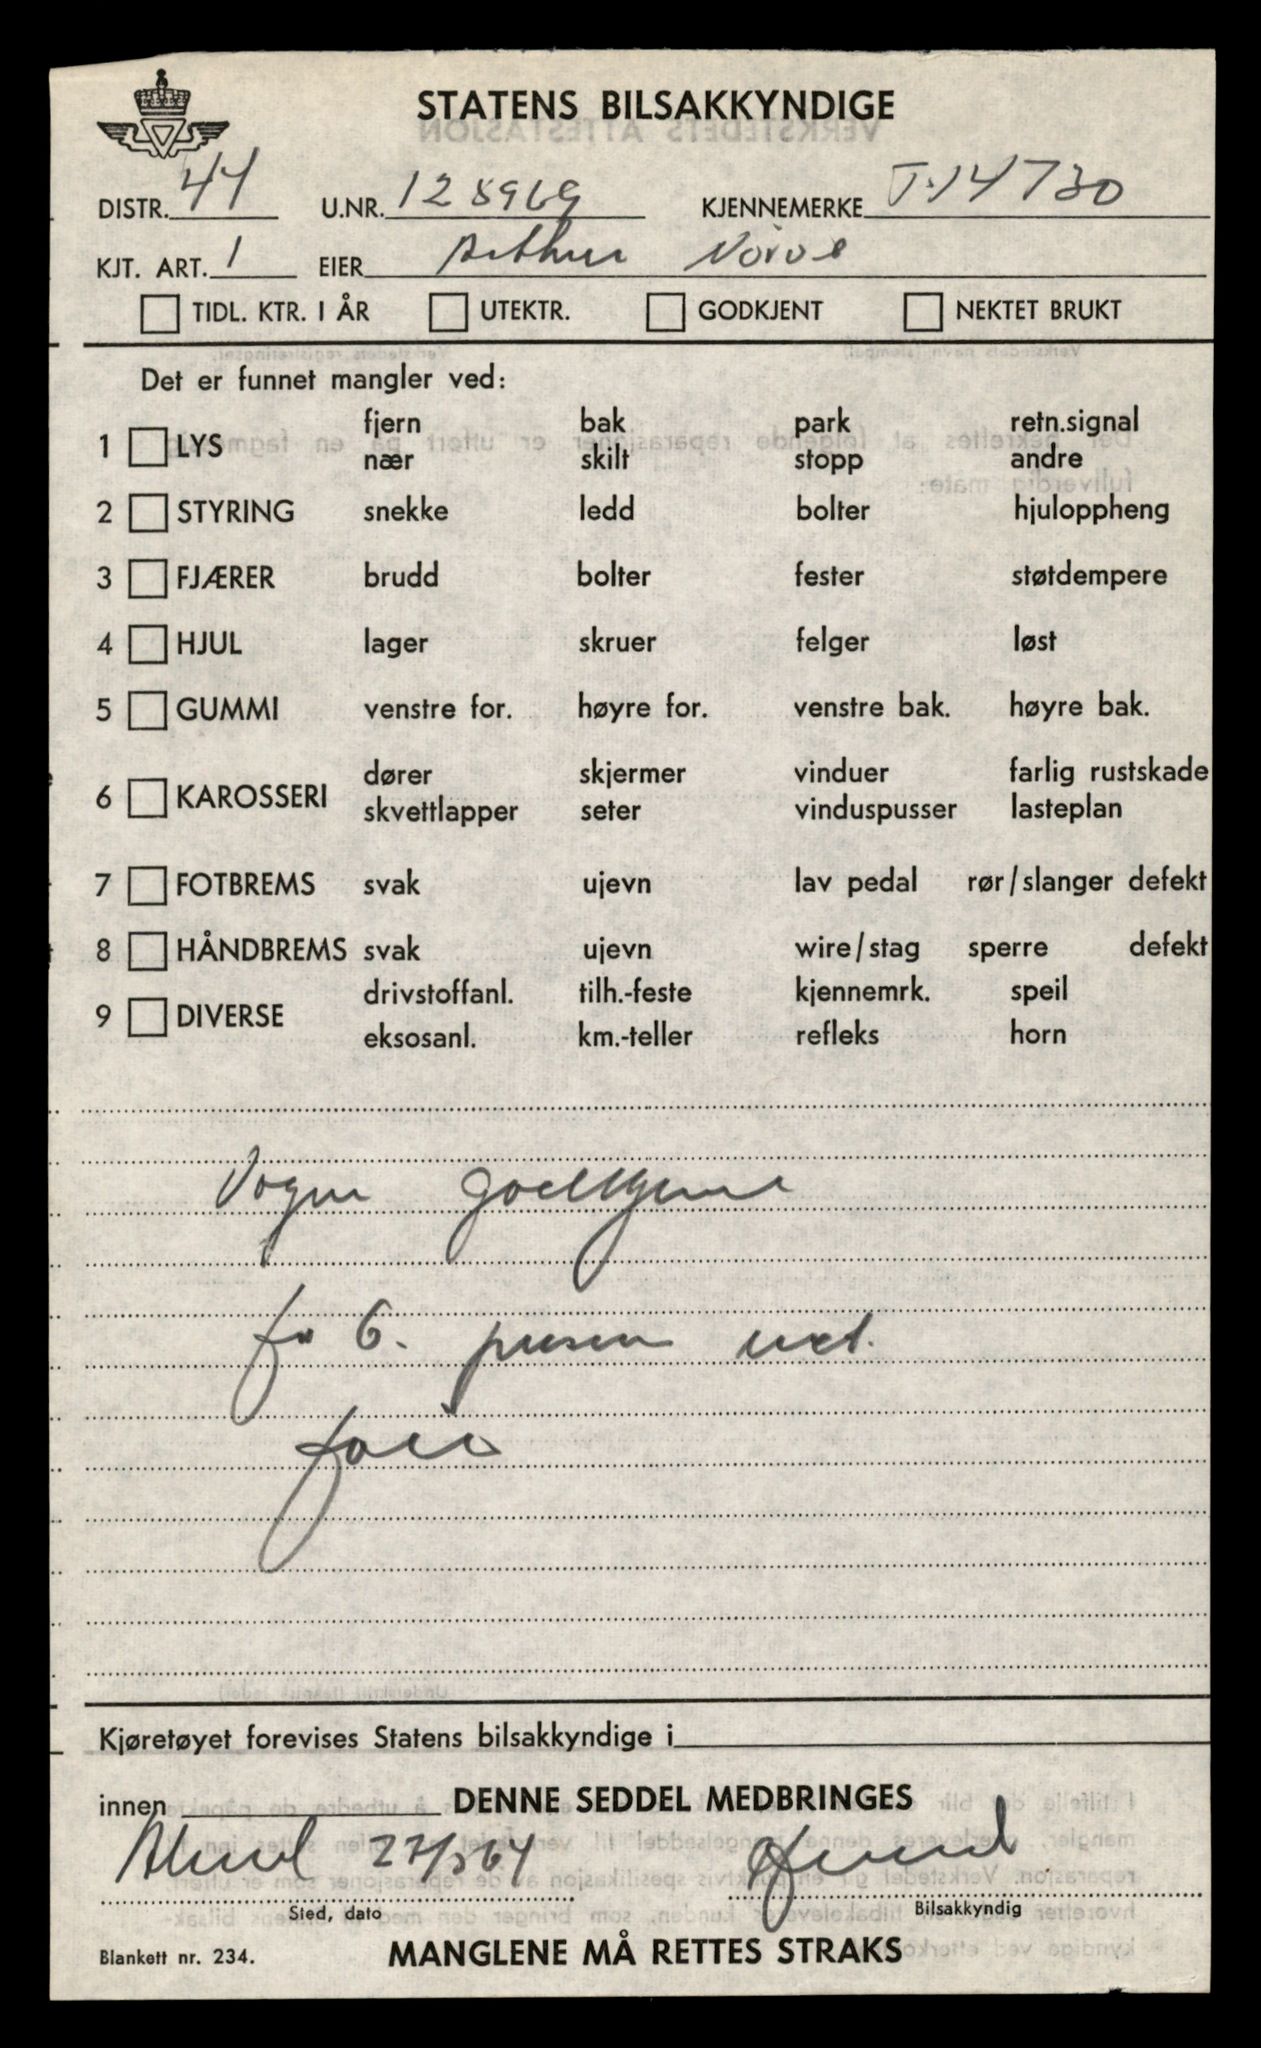 STATENS BILSAKKYNDIGE
DISTR. 44 U.NR. 128969 KJENNEMERKE T-14730
KJT. ART. 1 EIER Arthur
TIDL. KTR. I ÅR UTEKTR. GODKJENT NEKTET BRUKT
Det er funnet mangler ved:
1 LYS fjern bak park retn.signal
nær skilt stopp andre
2 STYRING snekke ledd bolter hjuloppheng
3 FJÆRER brudd bolter fester støtdempere
4 HJUL lager skruer felger løst
5 GUMMI venstre for. høyre for. venstre bak. høyre bak.
6 KAROSSERI dører skjermer vinduer farlig rustskade
skvettlapper seter vinduspusser lasteplan
7 FOTBREMS svak ujevn lav pedal rør/slanger defekt
8 HÅNDBREMS svak ujevn wire/stag sperre defekt
9 DIVERSE drivstoffanl. tilh.-feste kjennemrk. speil
eksosanl. km.-teller refleks horn
Vogne godkjene
for 6. person
Kjøretøyet forevises Statens bilsakkyndige i
innen DENNE SEDDEL MEDBRINGES
27/5 64
Sted, dato Bilsakkyndig
Blankett nr. 234. MANGLENE MÅ RETTES STRAKS